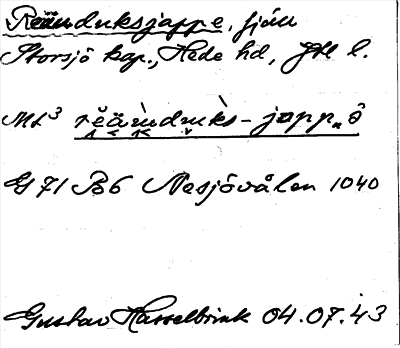 Reänduksjappe, fjäll
Storsjö kap., Hede hd, Jtl l.
Mt³ rĕäǹdùk̀s-japp„ô
G 71 Bo6 Nesjövålen 1040
Gustav Hasselbrink 04.07.43